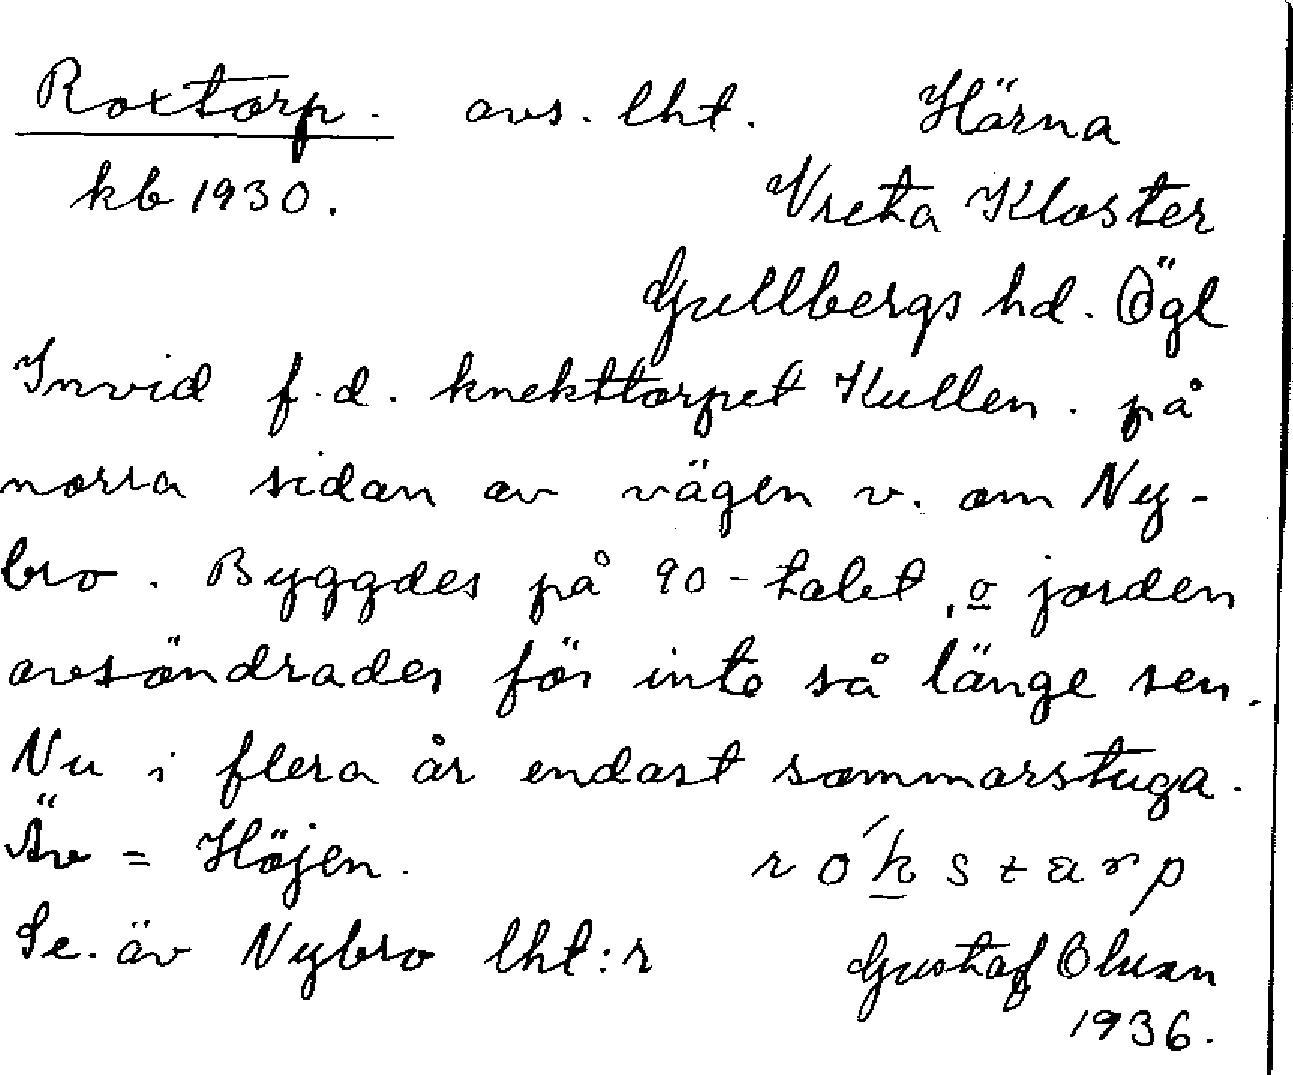 Roxtorp. avs. lht. Härna
kb 1930. Vreta Kloster
Gullbergs hd. Ögl
Invid f.d. knekttorpet Kullen. på
norra sidan av vägen v. om Ny-
bro. Byggdes på 90-talet, o jorden
avsöndrades för inte så länge sen.
Nu i flera år endast sommarstuga.
Äv = Höjen.
Se. äv Nybro lht:r Gustaf Olsson
1936.